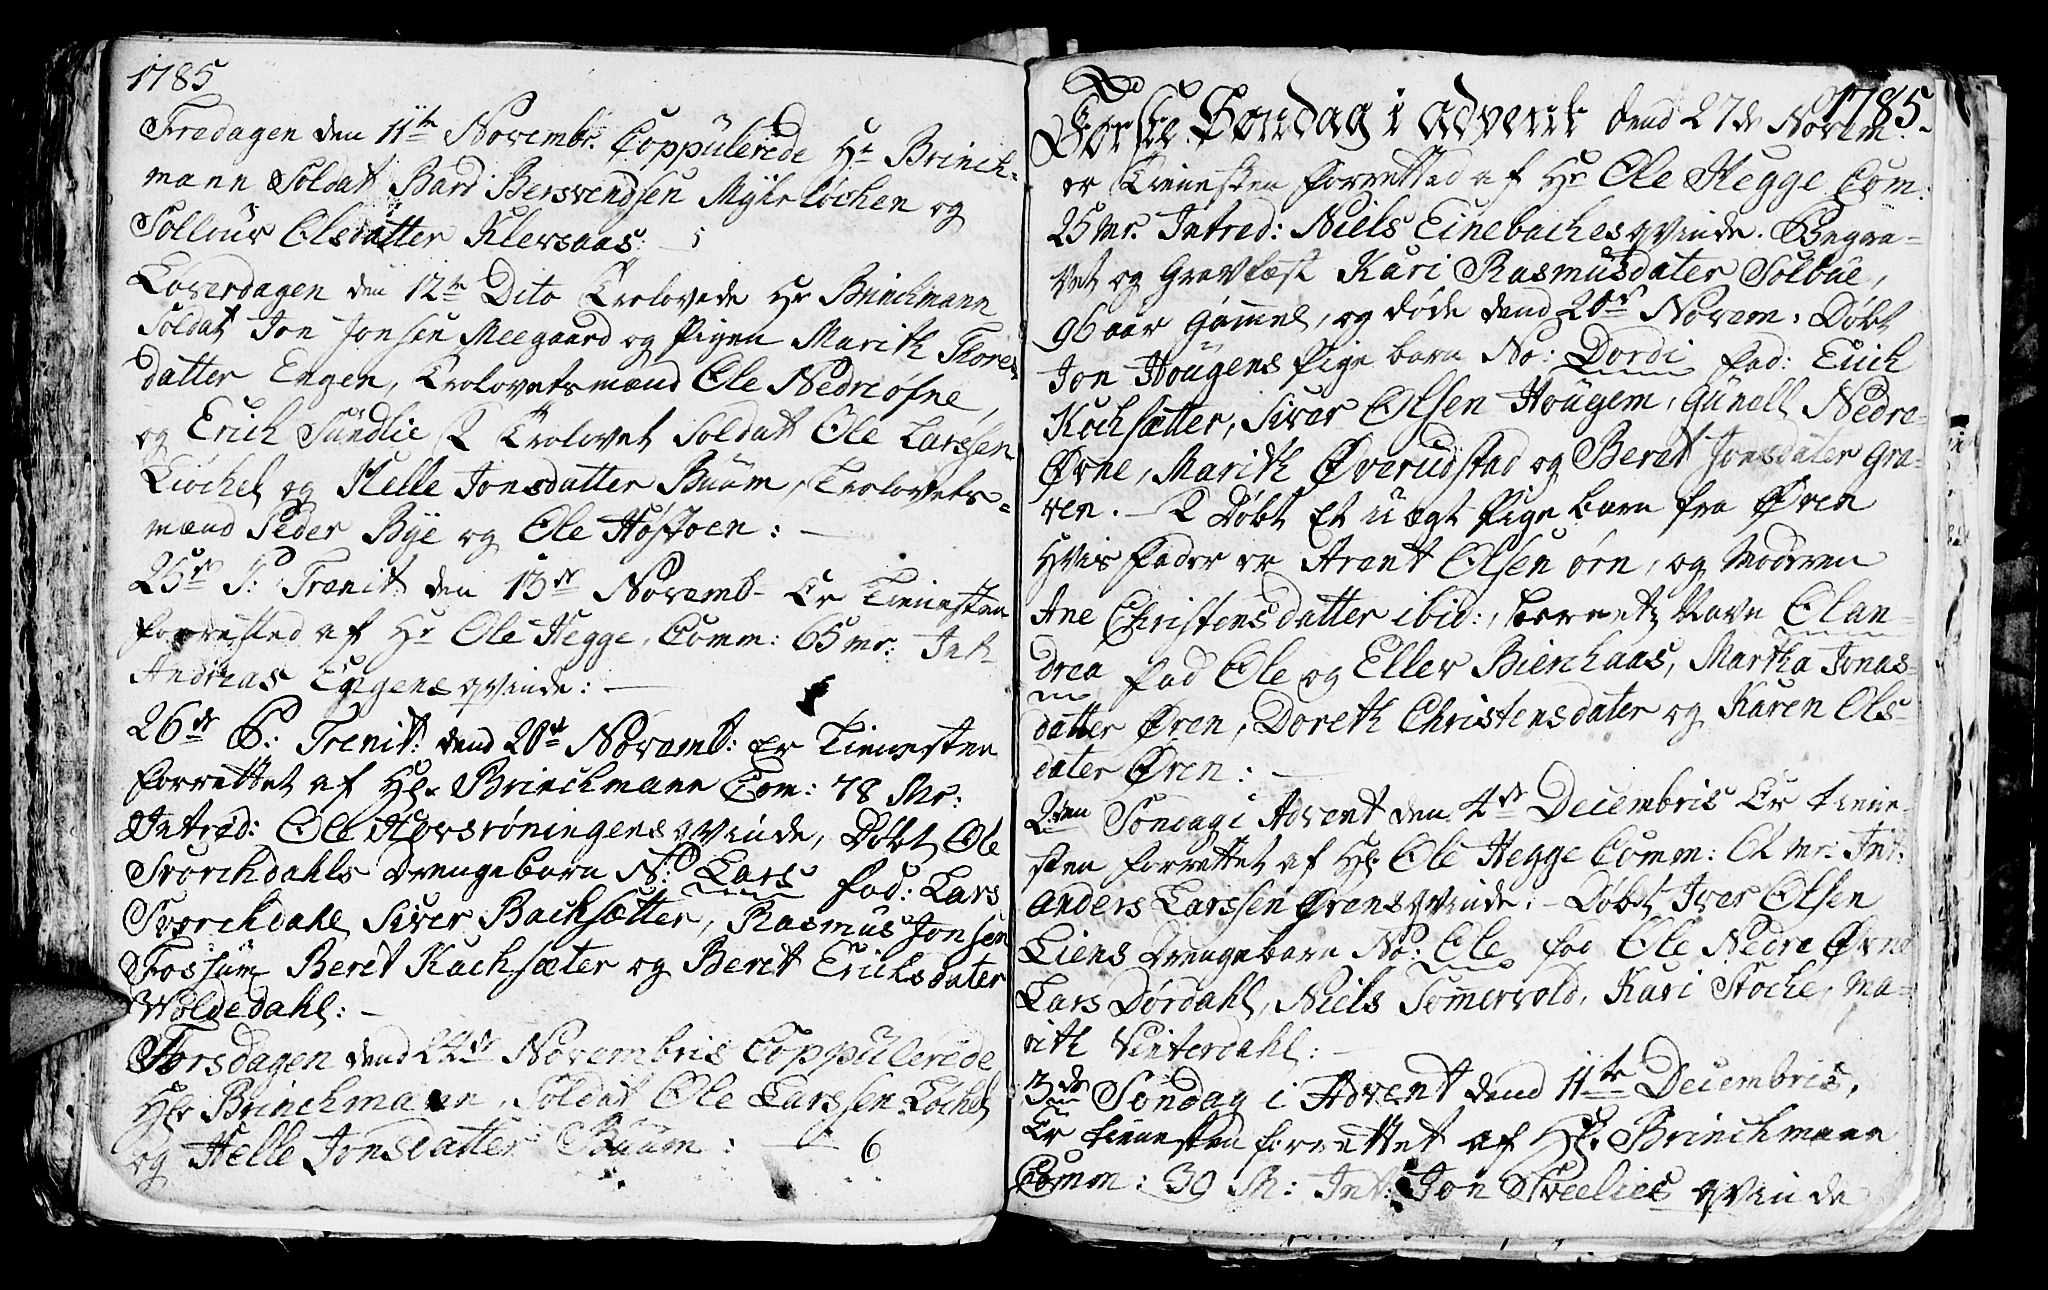 1785
Fredagen den 11te Novembr. Coppulerede Hr Brinck-
mann Soldat Bard Bersvendsen Myhrløchen og
Sollour Olsdatter Klevsaas: 5
Loverdagen den 12te Dito Trolovede Hr Brinchmann
Soldat Jon Jonsen Meegaard og Pigen Marith Thores
datter Engen, Trolovetsmænd Ole Nedreofne,
og Erich Sundlie 2 Trolovet Soldat Ole Larssen
Løchel og Helle Jonsdatter Buum, Trolovets-
mænd Peder Bye og Ole Høstoen: —
25de S: Trenit: den 13de Novemb- Er Tienesten
forretted af Hr Ole Hegge, Comm: 65 mr: Int-
Andreas Eggens qvinde: —
26de S: Trenit: dend 20de Novemb: Er Tienesten
forrettet af Hr. Brinchmann Com: 78 Mr:
Introd: Ole Horsrøningens qvinde, Døbt Ole
Svorchdahls Drengebarn N: Lars fad: Lars
Svorchdahl Siver Bachsætter, Rasmus Jonsen
Fossum Berit Kachsæter og Berit Erichsdater
Woldedahl: —
Torsdagen dend 24de Novembris Coppulerede
Hr Brinchmann, Soldat Ole Larssen Løchel
og Helle Jonsdatter Buum: — 6
1785.
Første Søndag i advent dend 27de Novem:
er Tienesten forretted af Hr Ole Hegge Com:
25 mr. Introd: Niels Einebaches qvinde. Begra-
vet og Gravfæst Kari Rasmusdater Solbue,
96 aar gammel, og døde dend 20de Novem: Døbt
Jon Hougens Pige barn No: Dordi fad: Erich
Kochsætter, Siver Olsen Hougem, Gunell Nedre-
Øvne, Marith Øverudstad og Beret Jonsdater Gra-
ven. — 2 Døbt Et uægt Pige barn fra Øren
Hvis fader er Arent Olsen ørn, og Moderen
Ane Christensdatter ibid:, barnetz Navn Olan-
drea fad Ole og Eller Bierchaas, Martha Jonas-
datter Øren, Doreth Christensdater og Karen Ols-
dater Øren: —
2den Søndag i Advent den 4de Decembris Er tiene-
sten forrettet af Hr Ole Hegge Comm: Mr: Int:
Anders Larssen Ørens qvinde: — Døbt Iver Olsen
Liens Drengebarn No: Ole fad Ole Nedre Øvne
Lars Dørdahl, Niels Somervold, Kari Stocke, Ma-
rith Vinterdahl: —
3de Søndag i Advent dend 11te Decembris,
Er tienesten forrettet af Hr. Brinchmann
Comm: 39 M: Int: Jon Sveelies qvinde